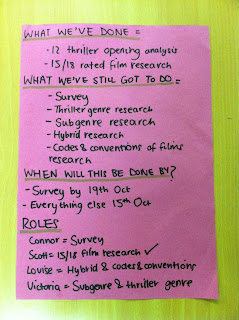 WHAT WE'VE DONE =
- 12 thriller opening analysis
- 15/18 rated film research
WHAT WE'VE STILL GOT TO DO =
- Survey
- Thriller genre research
- Subgenre research
- Hybrid research
- Codes & conventions of films
research
WHEN WILL THIS BE DONE BY?
- Survey by 19th Oct
- Everything else 15th Oct
ROLES
Connor = Survey
Scott = 15/18 film research ✓
Louise = Hybrid & codes & conventions
Victoria = Subgenre & thriller genre